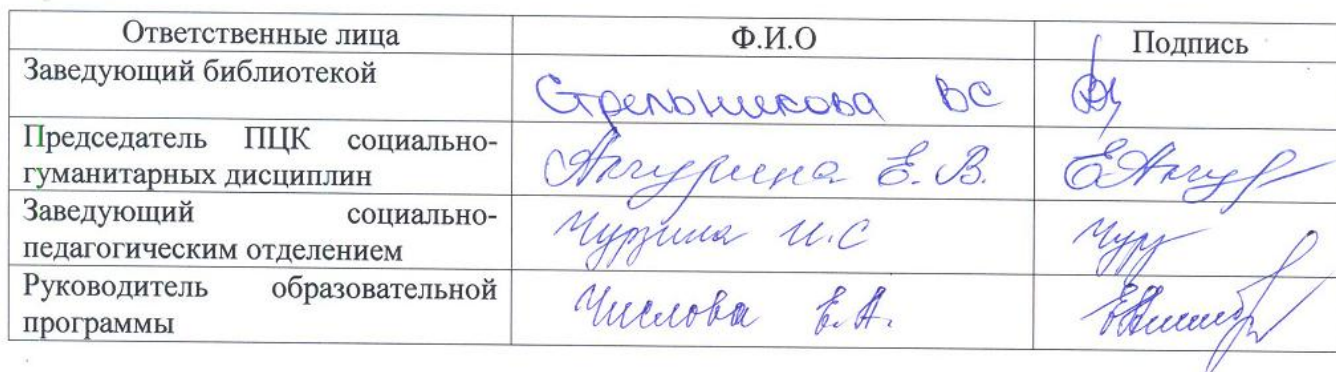 Ответственные лица Ф.И.О Подпись
Заведующий библиотекой
Стрельникова ВС
Председатель ПЦК социально-
гуманитарных дисциплин
Е. В.
Заведующий социально-
педагогическим отделением
Чурзина И.С
Руководитель образовательной
программы
Числова Е.А.